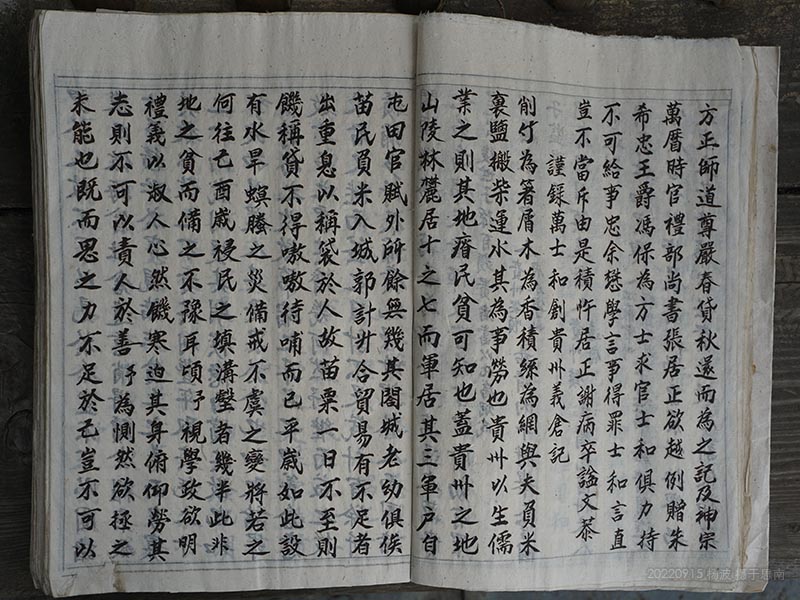 方正師道尊嚴春貸秋還而為之記及神宗
萬曆時官禮部尚書張居正欲越例贈朱
希忠王爵馮保為方士求官士和俱力持
不可給事忠余懋學言事得罪士和言直
豈不當斥由是積忤居正謝病卒謚文恭
謹錄萬士和創貴州義倉記
削竹為箸屑木為香積綵為網與夫負米
裏鹽搬柴運水其為事勞也貴州以生儒
業之則其地瘠民貧可知也蓋貴州之地
山陵林麓居十之七而軍居其三軍户自
屯田官賦外所餘無幾其閤城老幼俱俟
苗民負米入城郭計升合貿易有不足者
出重息以稱袋於人故苗粟一日不至則
饑稱貸不得嗷嗷待哺而已平歲如此設
有水旱螟螣之災備戒不虞之變將若之
何往己酉歲祲民之填溝壑者幾半此非
地之貧而備之不豫耳頃予視學政欲明
禮義以淑人心然饑寒迫其身俯仰勞其
志則不可以責人於善予為惻然欲拯之
未能也既而思之力不足於己豈不可以
20220915 杨波 摄于思南